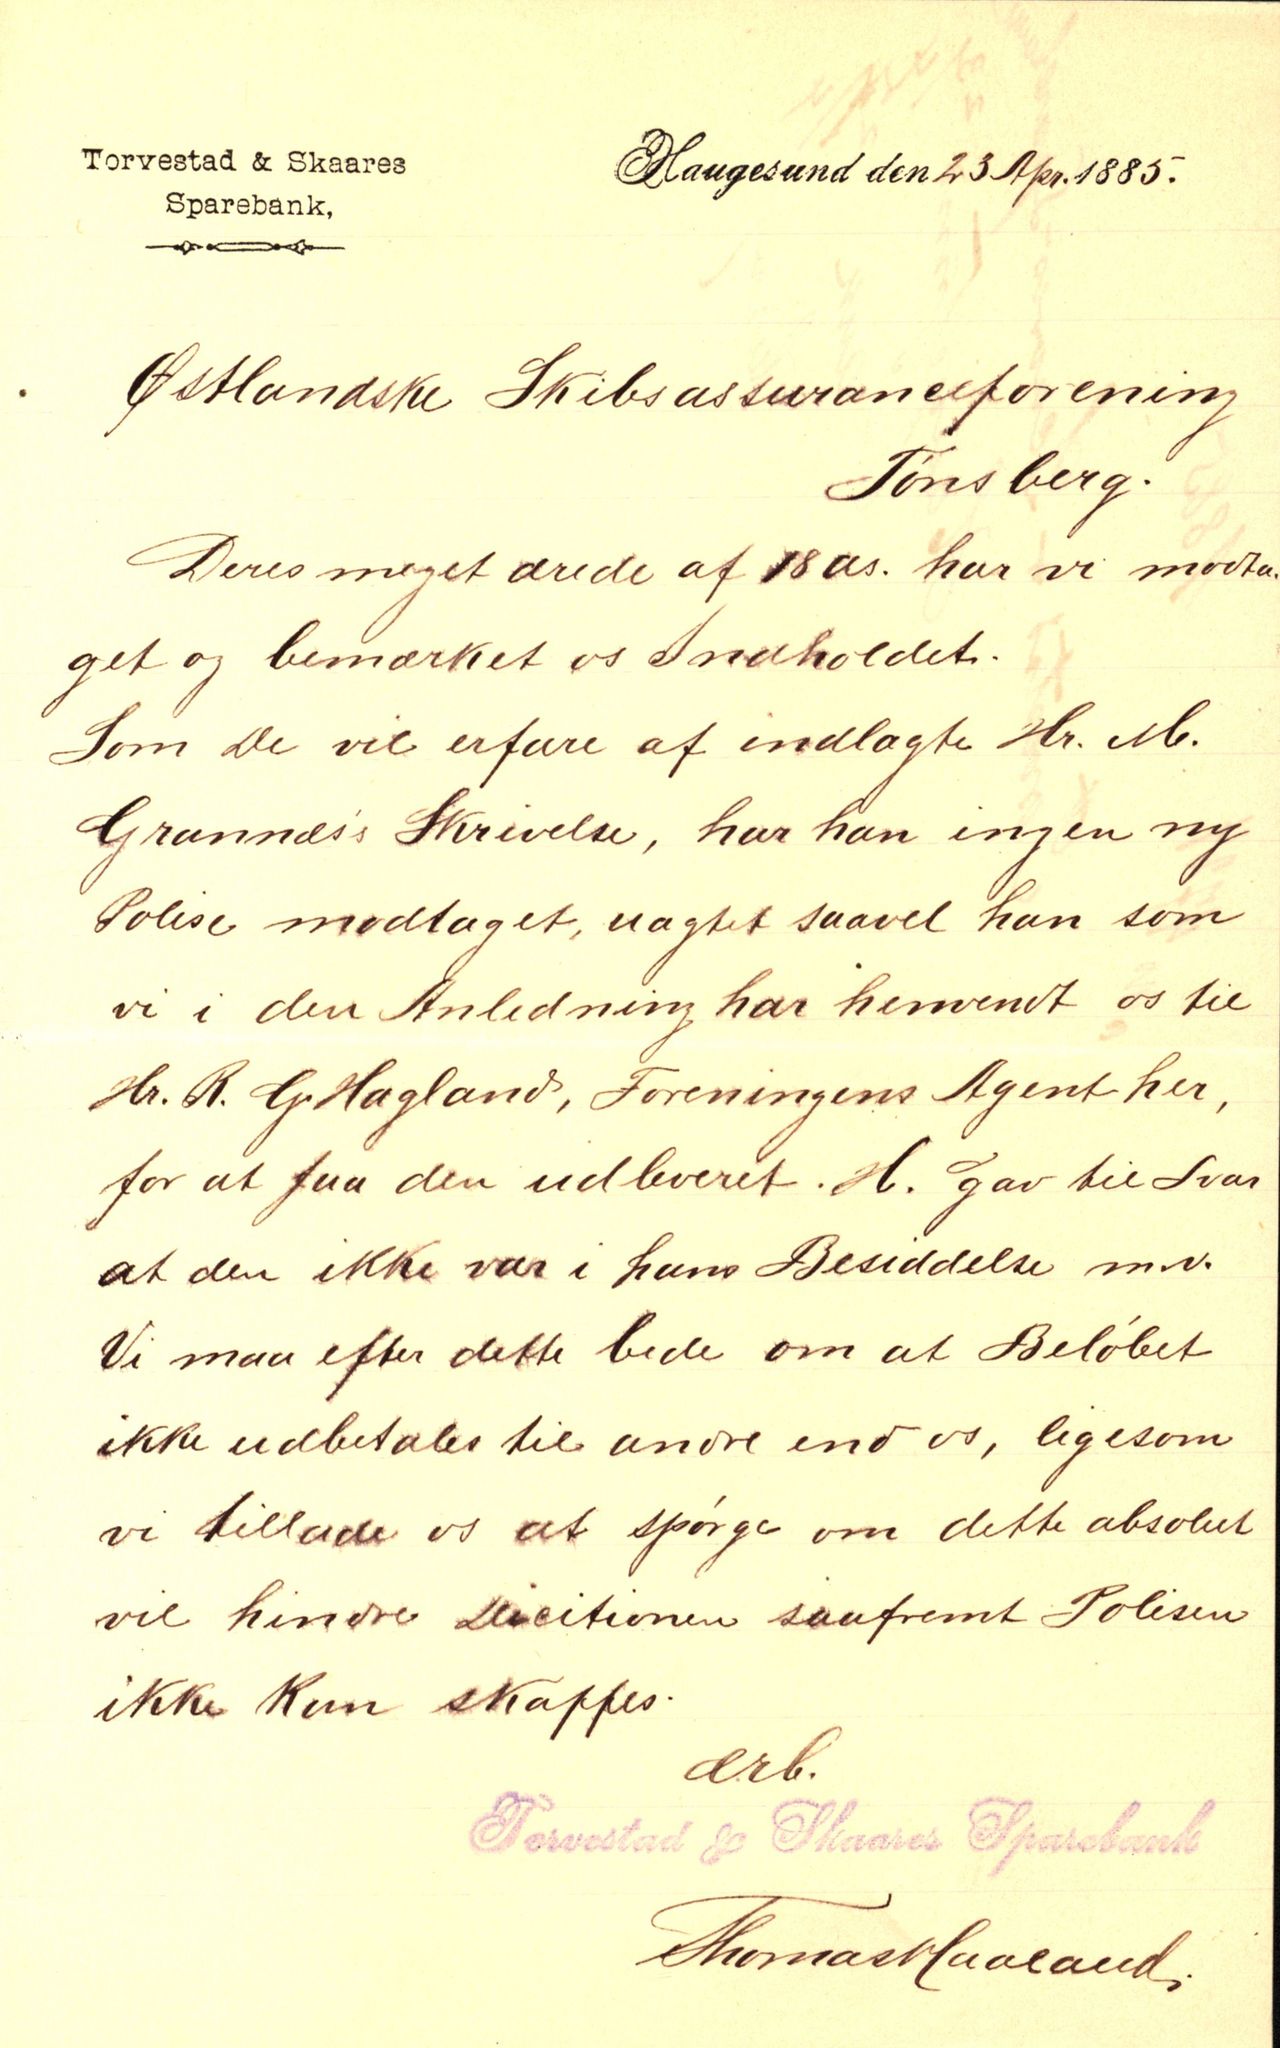 Torvestad & Skaares
Sparebank,
Haugesund den 23 Apr. 1885.
Østlandske Skibsassuranceforening
Tönsberg.
Deres meget ærede af 18 ds. har vi modta-
get og bemærket os Indholdet.
Som De vil erfare af indlagte Hr. M.
Grannæs's Skrivelse, har han ingen ny
Polise modtaget, uagtet saavel han som
vi i den Anledning har henvendt os til
Hr. R. G. Hagland, Foreningens Agent her,
for at faa den udleveret. H. gav til Svar
at den ikke var i hans Besiddelse m.v.
Vi maa efter dette bede om at Belöbet
ikke udbetales til andre end os, ligesom
vi tillade os at spörge om dette absolut
vil hindre saafremt Polisen
ikke kan skaffes.
ærb.
Torvestad & Skaares Sparebank
Thomas Haaland.